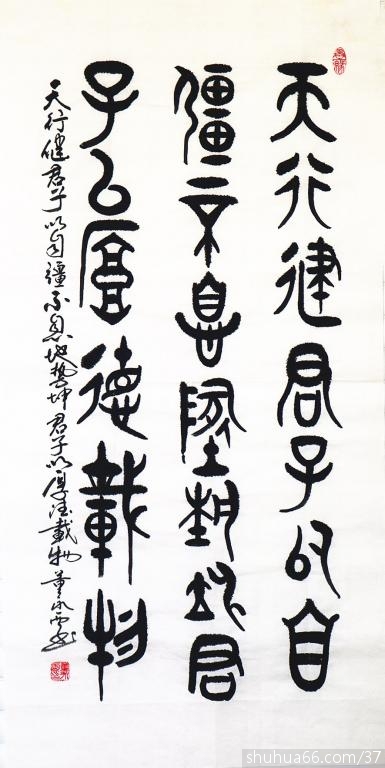 天行健君子以自
彊不息地勢坤君
子以厚德載物
天行健君子以自疆不息地势坤君子以厚德載物董永
shuhua66.com/37